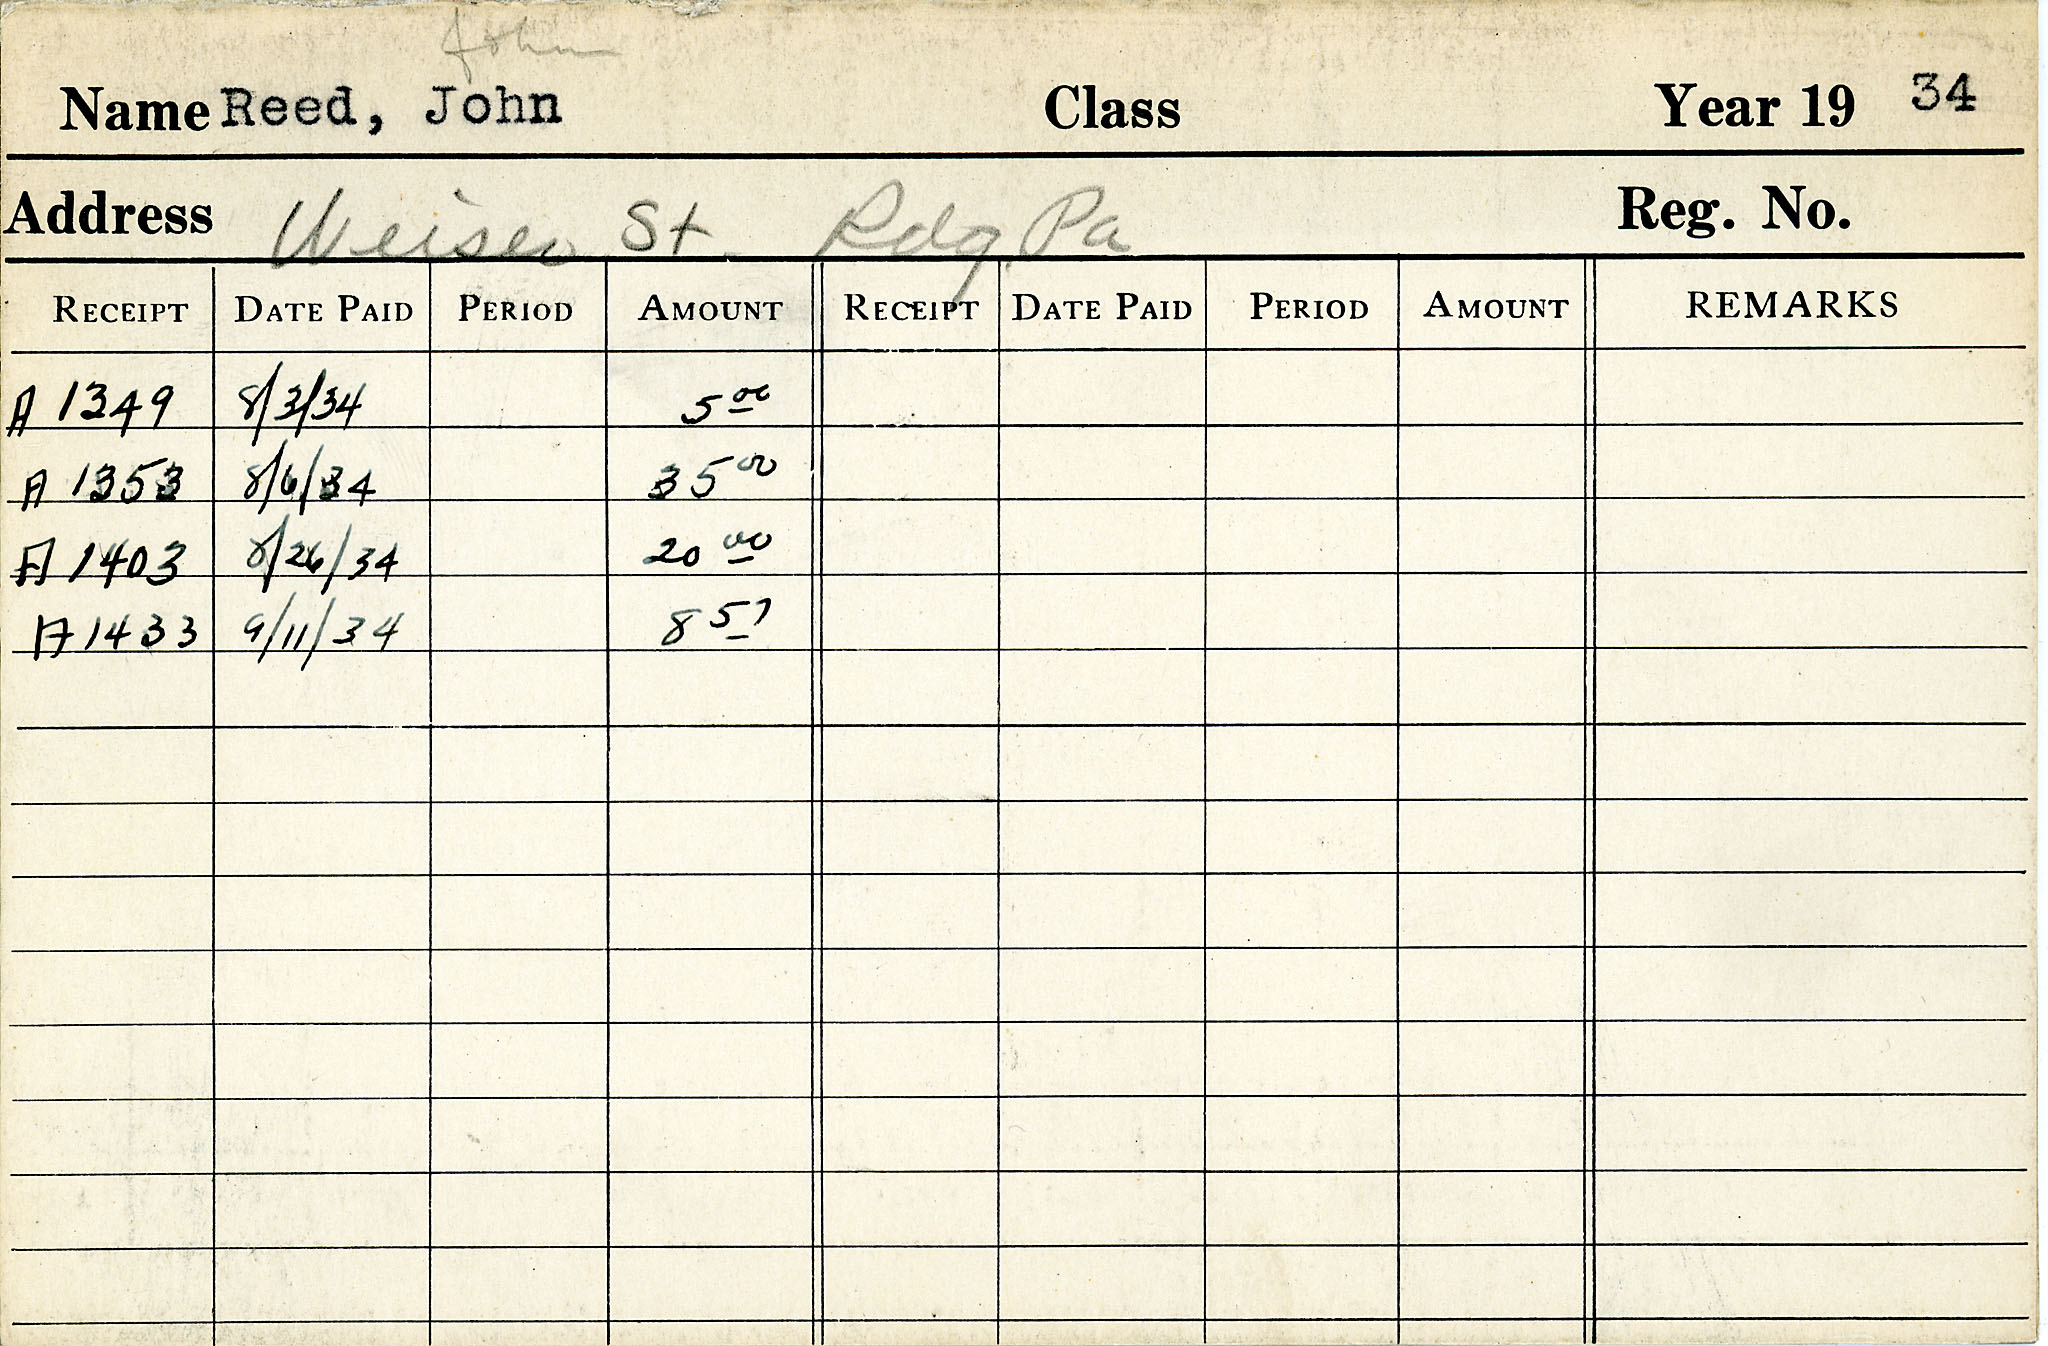 John
Name Reed, John Class Year 19 34
Address Weiser St. Rdg. Pa Reg. No.
RECEIPT DATE PAID PERIOD AMOUNT RECEIPT DATE PAID PERIOD AMOUNT REMARKS
A 1349 8/3/34 5 00
A 1353 8/6/34 35 00
A 1403 8/26/34 20 00
A 1433 9/11/34 8 57